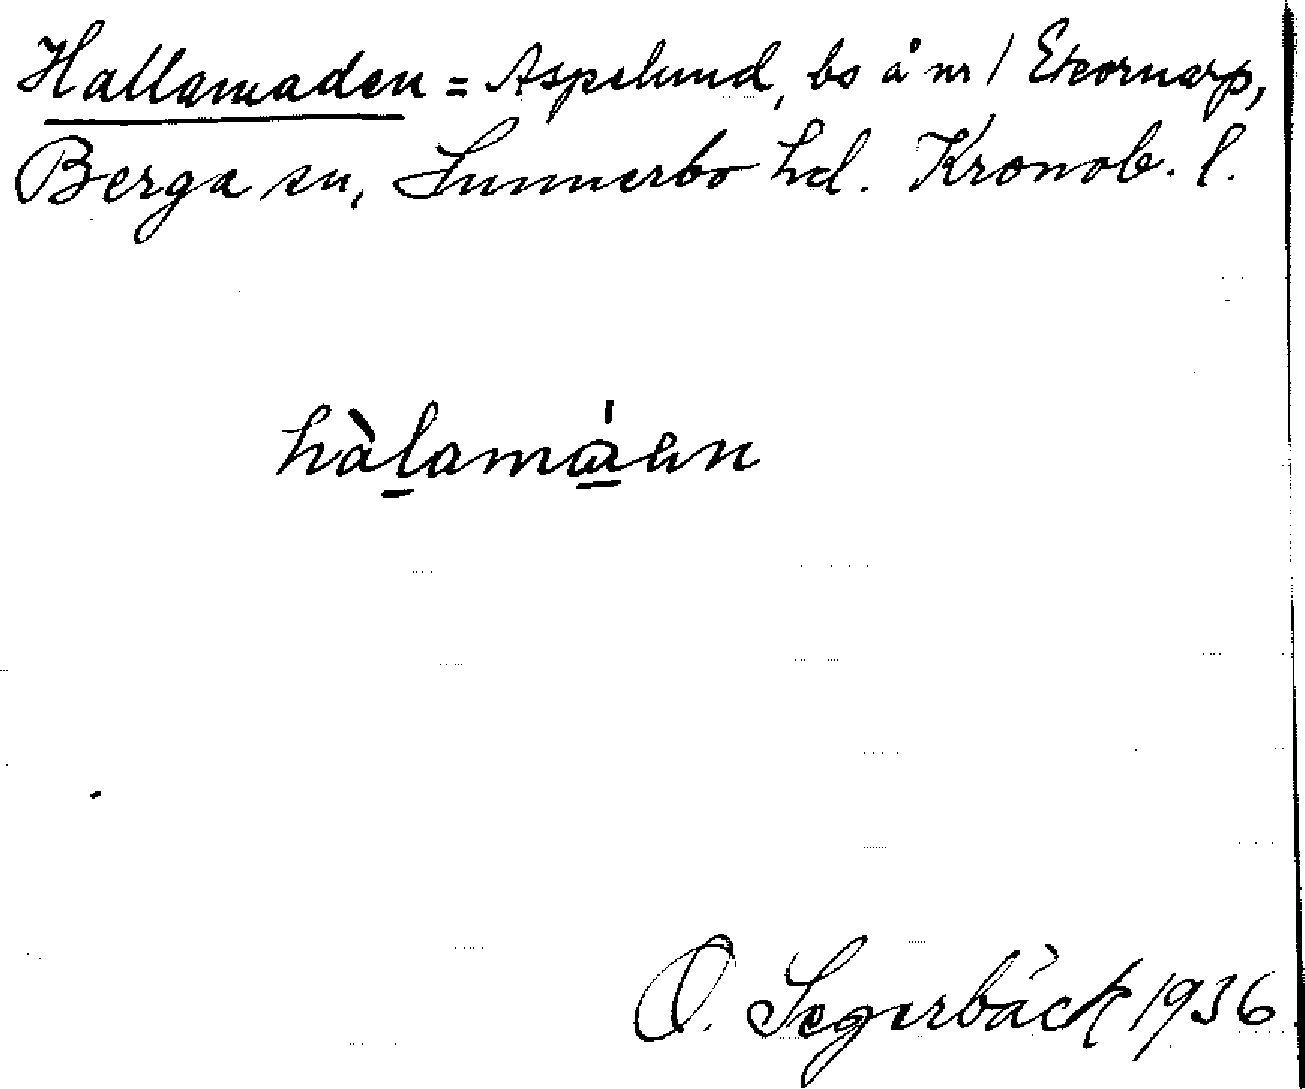 Hallamaden = Aspelund, bs å nr 1 Ekornarp,
Berga sn, Sunnerbo hd. Kronob. l.
hàlamáen
O. Segerbäck 1936